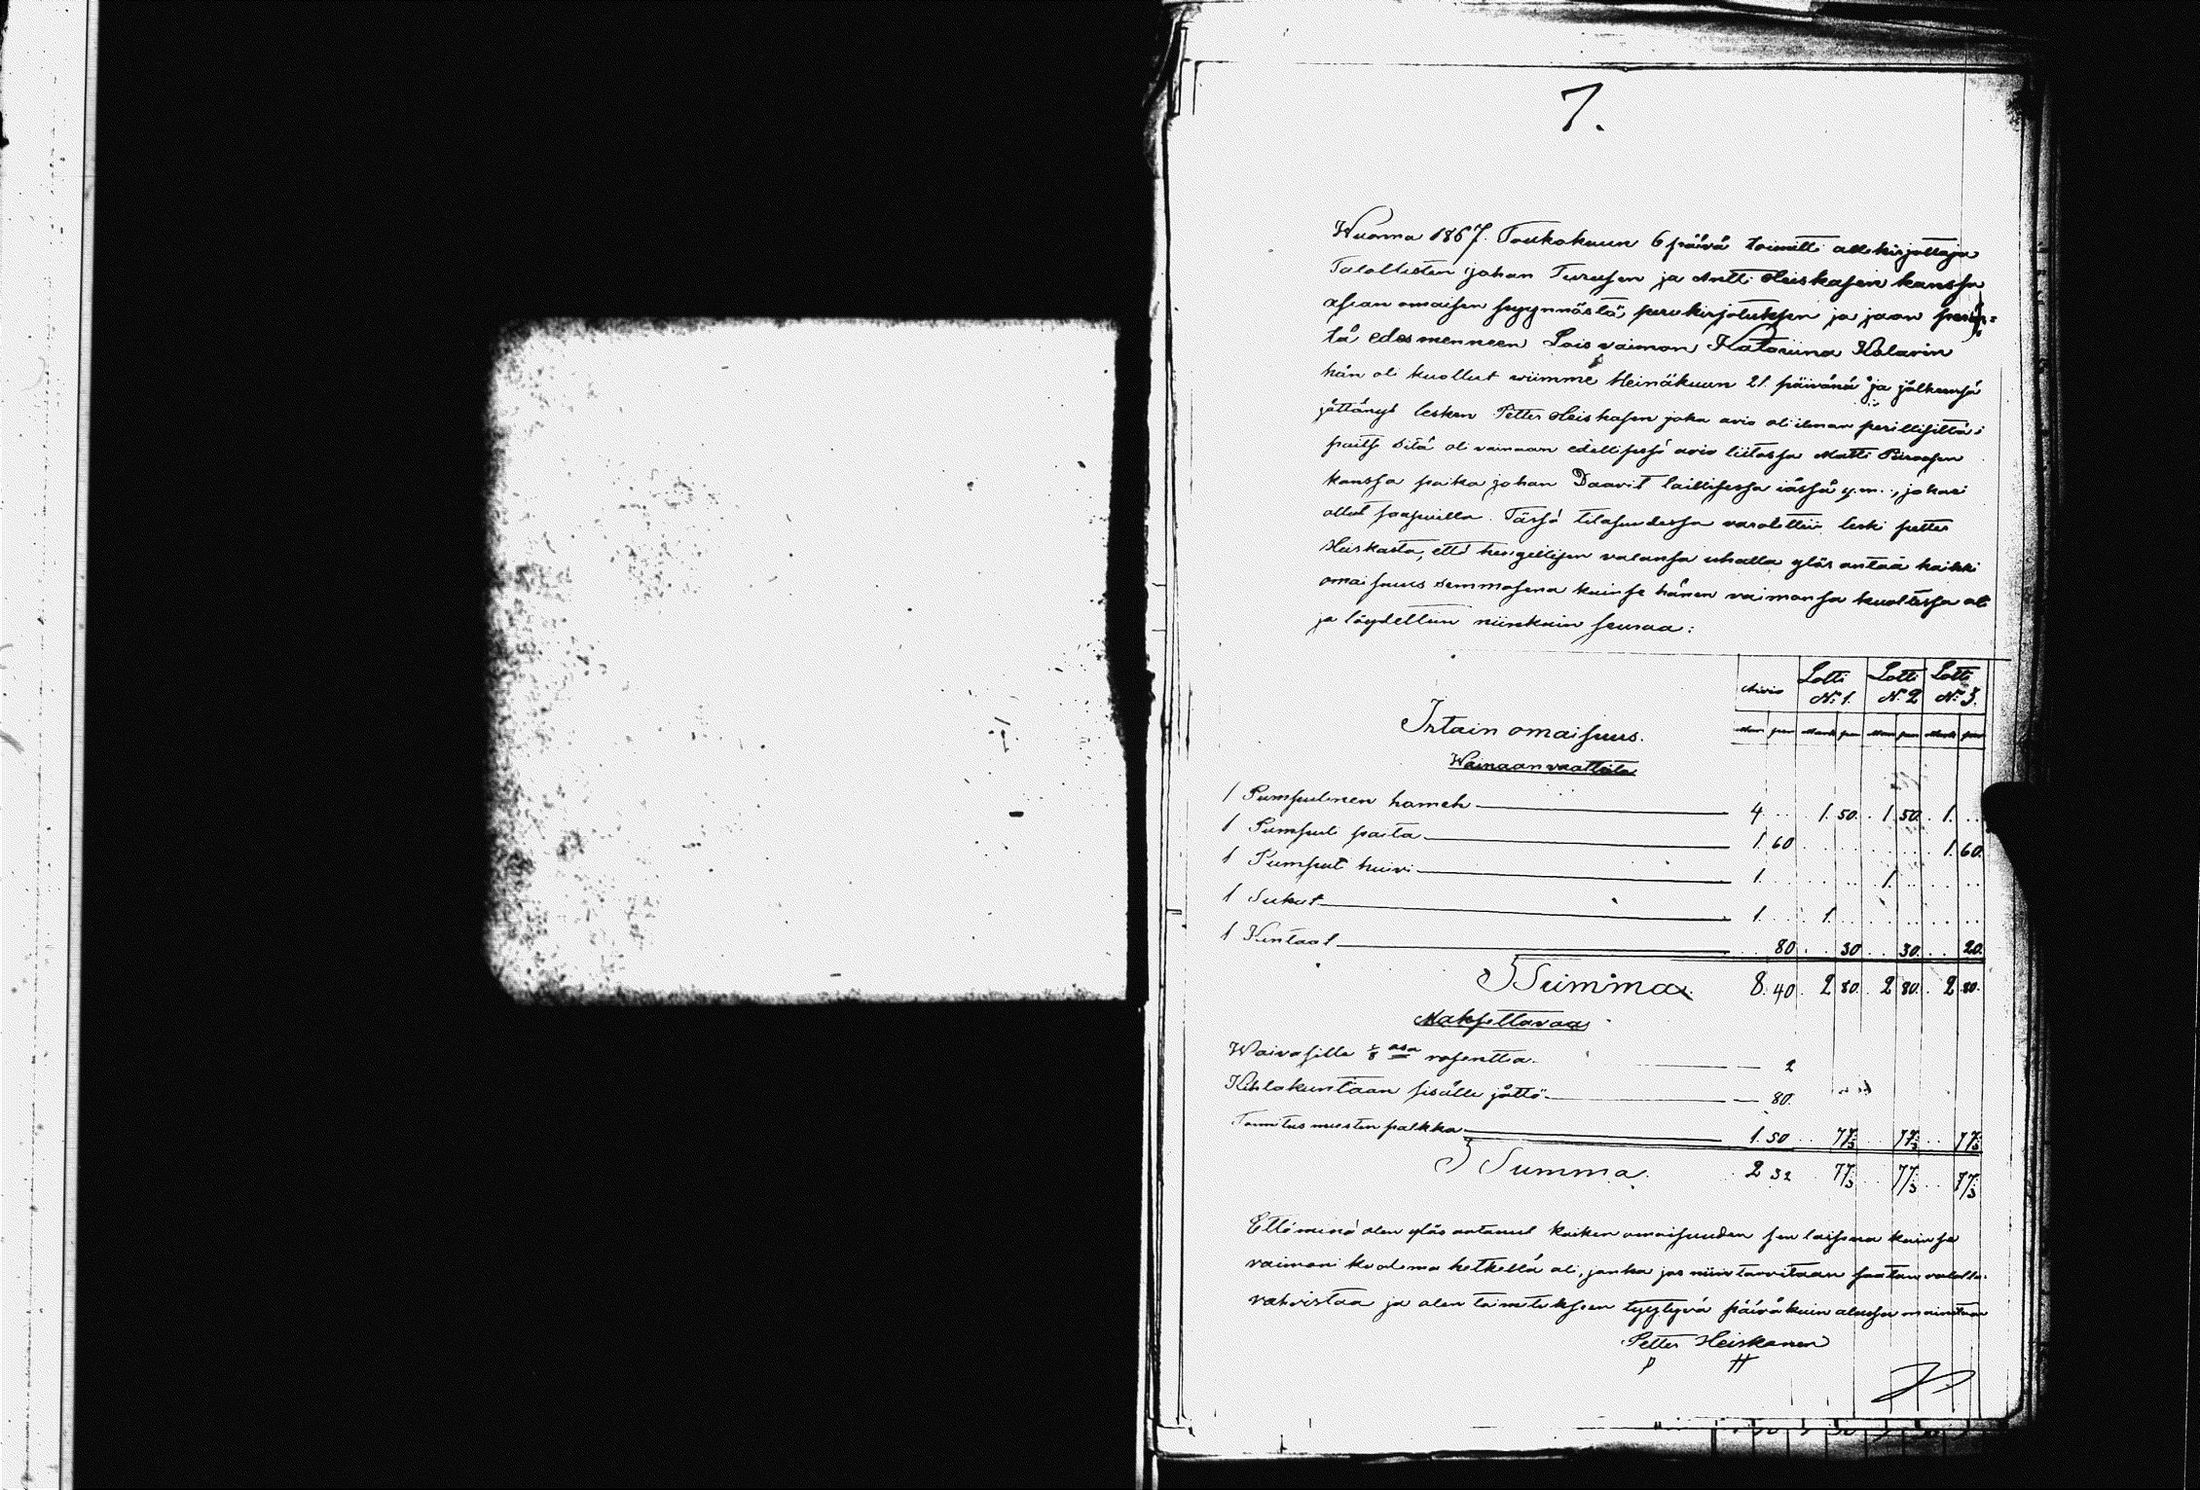 7.
Wuonna 1867. Toukokuun 6 päivä toimitti allekirjottaja
Talollisten Johan Turusen ja Antti Heiskasen kanssa
asian omaisen pyynnöstä, perukirjotuksen ja jaon peräs=
tä edesmenneen Loisvaimon Katariina Kolarin
hän oli kuollut wiimme Heinäkuun 21. päivänä ja jälkeensä
jättänyt lesken Petter Heiskasen joka avio oli ilman perillisittä;
paitsi sitä oli vainaan edellisessä avio liitossa Matti
kanssa poika Johan Daavit laillisessa iässä y.m., joka ei
ollut saapuvilla. Tässä tilasuudessa varotettiin leski petter
Heiskasta, että hengellisen valansa uhalla ylös antaa kaikki
omaisuus semmosena kuin se hänen vaimonsa kuoltessa oli
ja löydettiin niinkuin seuraa:
Arvio Lotti N:o 1. Lotti N:o 2 Lotti N:o 3.
Irtain omaisuus. Mar pen Mark pen Mar pen Mark pen
Wainaan vaatteita
1 Pumpulinen hameh 4 . . 1. 50. 1. 50. 1. . .
1 Pumpuli paita 1. 60 1. 60.
1 Pumpuli huivi 1. 1.
1 Sukat 1. 1.
1 Kintaat 80. 30 30. 20.
Summa 8. 40. 2 80. 2 80. 2 80.
Maksettavaa
Waivasille 1/8 osa rosenttia. 2
Kihlakuntaan sisälle jättö 80.
Toimitus miesten palkka 1. 50 77/3 77/3 77/3
Summa. 2 32 77/3 77/3 77/3
Että minä olen ylös antanut kaiken omaisuuden sen laisena kuin se
vaimoni kuolema hetkellä oli, jonka jos niin tarvitaan saatan valalla
vahvistaa ja olen toimitukseen tyytyvä päivä kuin alussa mainitaan
Petter Heiskanen
P H